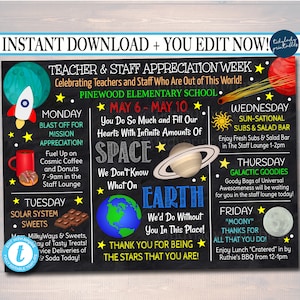 INSTANT DOWNLOAD + YOU EDIT NOW!
TEACHER & STAFF APPRECIATION WEEK
Celebrating Teachers and Staff Who Are Out of This World!
PINEWOOD ELEMENTARY SCHOOL
MONDAY
BLAST OFF FOR
MISSION
APPRECIATION!
Fuel Up on
Cosmic Coffee
and Donuts
7-9am in the
Staff Lounge
TUESDAY
SOLAR SYSTEM
SWEETS
MilkyWays & Sweets,
of Tasty Treats
Service Deliveries
Soda Today!
t
MAY 6 - MAY 10
You Do So Much and Fill Our
Hearts With Infinite Amounts Of
SPACE
We Don't Know
What On
EARTH
We'd Do Without
You In This Place!
THANK YOU FOR BEING
THE STARS THAT YOU ARE!
WEDNESDAY
SUN-SATIONAL
SUBS & SALAD BAR
Enjoy Fresh Subs & Salad Bar
In The Staff Lounge 1-2pm
THURSDAY
GALACTIC GOODIES
Goody Bags of Universal
Awesomeness will be waiting
for you in the staff lounge today!
FRIDAY
"MOON"
THANKS FOR
ALL THAT YOU DO!
Enjoy Lunch "Cratered" in by
Ruthie's BBQ from 12-1pm